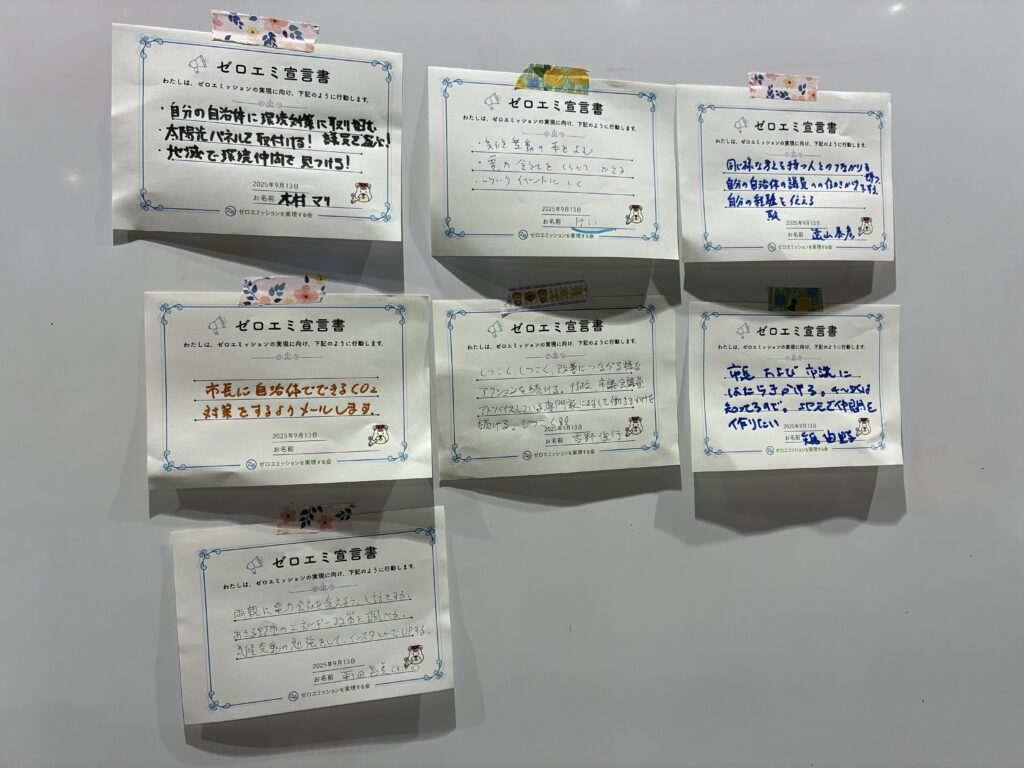 ゼロエミ宣言書
わたしは、ゼロエミッションの実現に向け、下記のように行動します。
・自分の自治体に環境対策に取り組む
・太陽光パネルを取付ける! 議員を選ぶ!
・地域で環境仲間を見つける!
2025年9月13日
お名前 木村 マリ
ゼロエミッションを実現する会
ゼロエミ宣言書
わたしは、ゼロエミッションの実現に向け、下記のように行動します。
・気候変動の本をよむ
・電力会社を くらべて かえる
・こういう イベントに いく
2025年9月13日
お名前 けい
ゼロエミッションを実現する会
ゼロエミ宣言書
わたしは、ゼロエミッションの実現に向け、下記のように行動します。
同じ様な考えを持つ人とのつながりを持つ
自分の自治体の議員への働きかけをする
自分の経験を伝える
2025年9月13日
お名前 遠山
ゼロエミッションを実現する会
ゼロエミ宣言書
わたしは、ゼロエミッションの実現に向け、下記のように行動します。
市長に自治体でできるCO2
対策をするようメールします
2025年9月13日
お名前
ゼロエミッションを実現する会
ゼロエミ宣言書
わたしは、ゼロエミッションの実現に向け、下記のように行動します。
しつこく、しつこく 改善につながる様な
アクションを続ける。行政 市議会議員
アドバイスしている専門家に対して働きかけを
続ける。しつこく!!
2025年9月13日
お名前 吉野 俊行
ゼロエミッションを実現する会
ゼロエミ宣言書
わたしは、ゼロエミッションの実現に向け、下記のように行動します。
市長 および 市議に
はたらきかける。
知ってるので。地元で仲間を
作りたい
2025年9月13日
お名前
ゼロエミッションを実現する会
ゼロエミ宣言書
わたしは、ゼロエミッションの実現に向け、下記のように行動します。
両親に電力会社を変えよう、と話をする。
あきる野市のエネルギー政策を調べる。
気候変動の勉強をして、インスタとかでUPする。
2025年9月13日
お名前
ゼロエミッションを実現する会